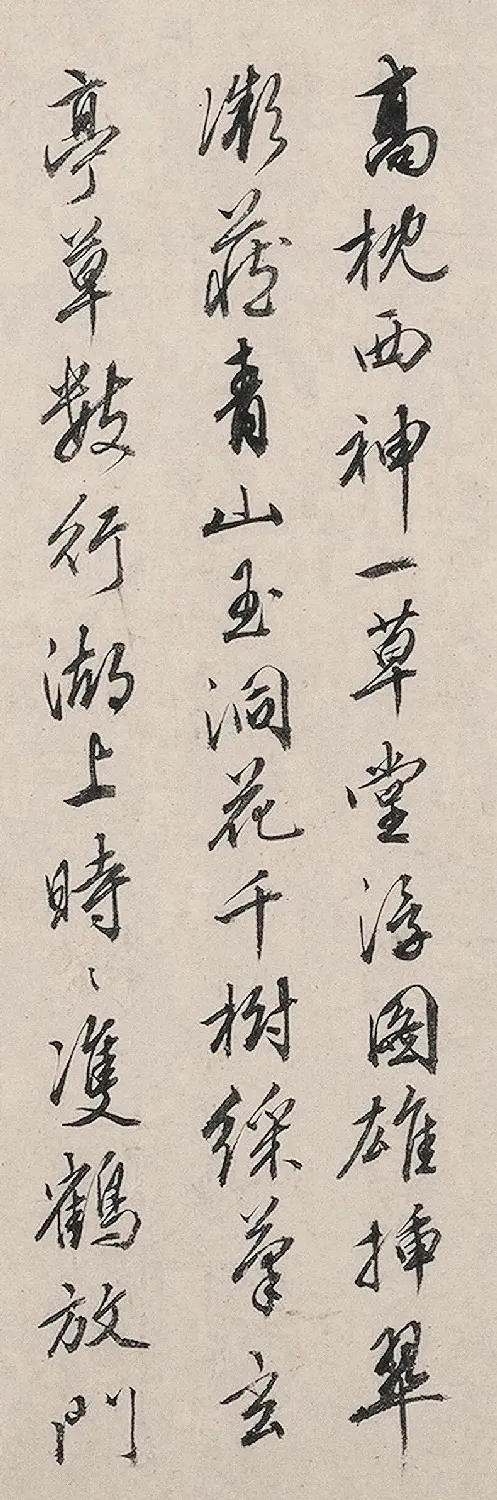 高枕西神一草堂浮圖雄插翠
微蒼青山玉洞花千樹綵筆玄
亭草數行湖上時〻雙鶴放門